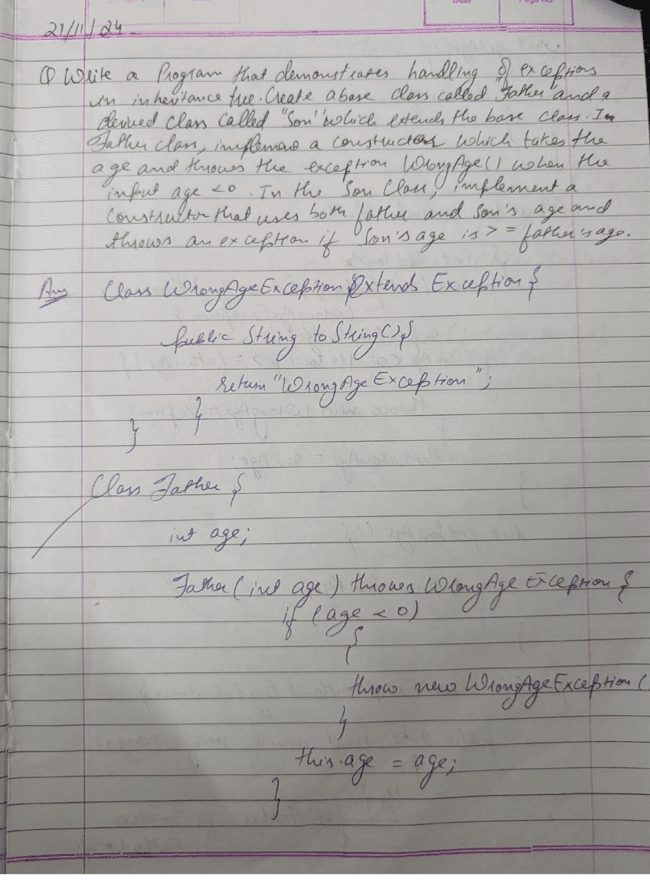 21/11/24
Q Write a Program that demonstrates handling of exceptions
in inheritance tree. Create a base class called "Father" and a
derived class called "Son" which extends the base class. In
Father class, implement a constructor which takes the
age and throws the exception WrongAge() when the
input age <0. In the Son Class, implement a
Constructor that uses both father and Son's age and
throws an exception if Son's age is >= father's age.
Ans Class WrongAgeException Extends Exception {
public String to String() {
return "WrongAgeException";
}
}
Class Father {
int age;
Father (int age) throws WrongAge Exception {
if (age < 0)
{
throw new WrongAgeException (
}
this.age = age;
}